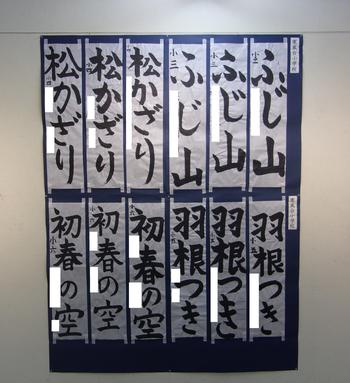 ふじ山
小三
ふじ山
小三
ふじ山
小三
松かざり
松かざり
松かざり
羽根つき
小五
羽根つき
羽根つき
初春の空
初春の空
初春の空
小六